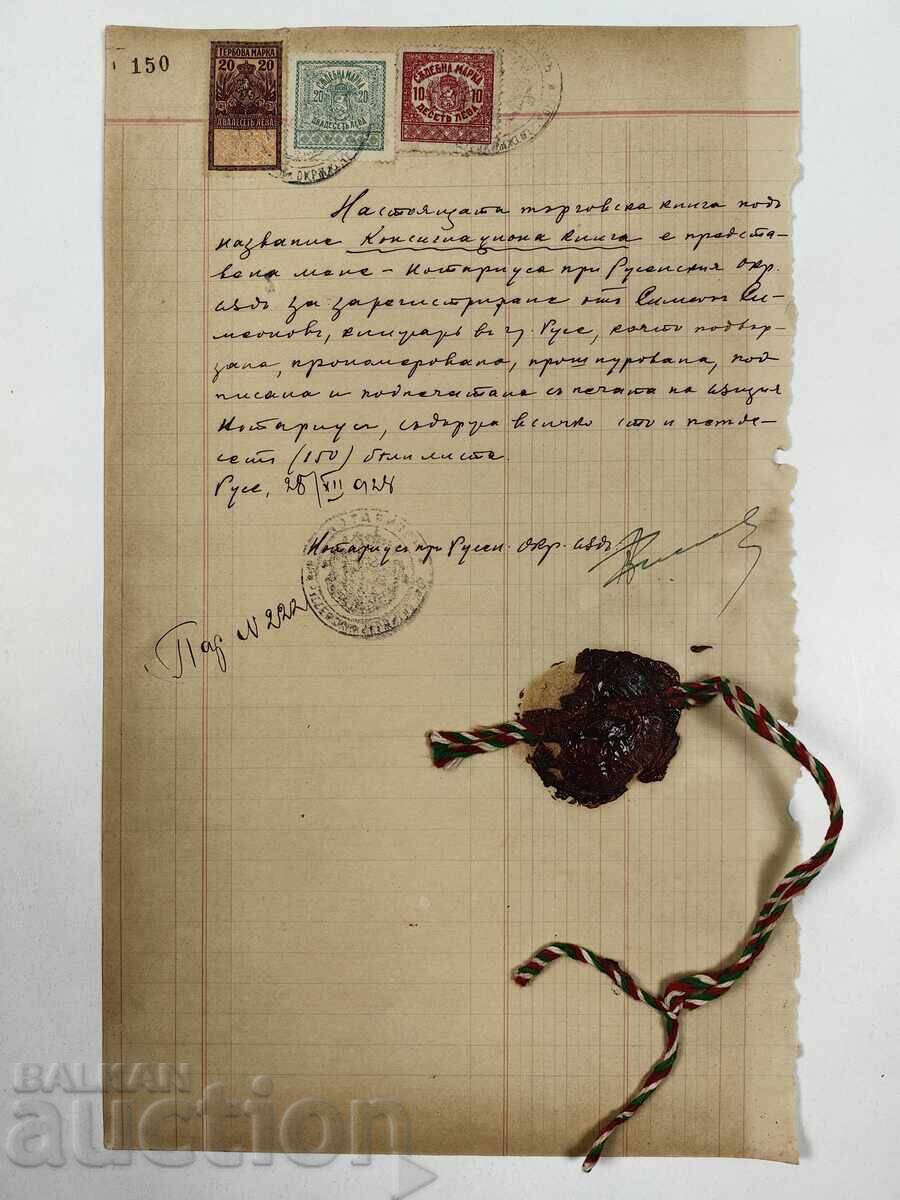 150
ГЕРБОВА МАРКА
20 20
ДВАДЕСЕТЬ ЛЕВА
СѪДЕБНА МАРКА
20 20
ДВАДЕСЕТЬ ЛЕВА
СѪДЕБНА МАРКА
10 10
ДЕСЕТЬ ЛЕВА
Настоящата търговска книга подъ
название Консигнациона книга е предста-
вена мене - Нотариуса при Русенския Окр.
сѫдъ за зарегистриране отъ Симеонъ Си-
меоновъ, книжарь въ гр. Русе, която подвър-
зана, прономерована, прошнурована, под
писана и подпечатана съ печата на сѫщия
Нотариусъ, съдържа всичко сто и петде-
сеть (150) бѣли листа.
Русе, 28/XII 928
Нотариусъ при Русен. Окр. сѫдъ
Пад N 222
BALKAN
auction